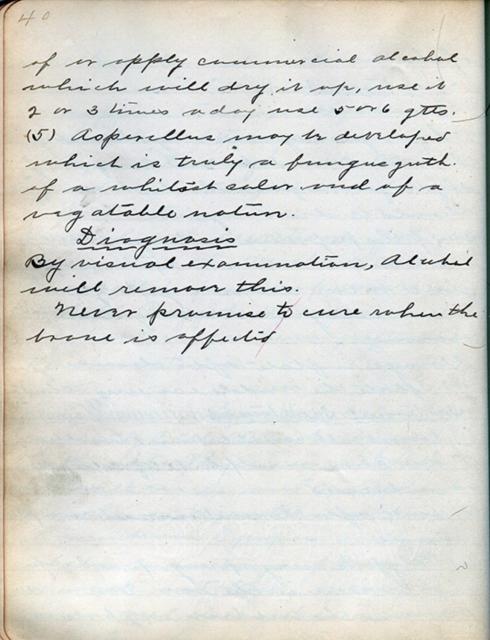 40
of or apply commercial alcohol
which will dry it up, use it
2 or 3 times a day use 5 or 6 gtts.
(5) Asperellus may be developed
which is truly a fungus guth.
of a whitest color and of a
vegatable naturn.
Diagnosis
By visual examination, Alcohol
will remove this.
Never promise to cure when the
brane is affected